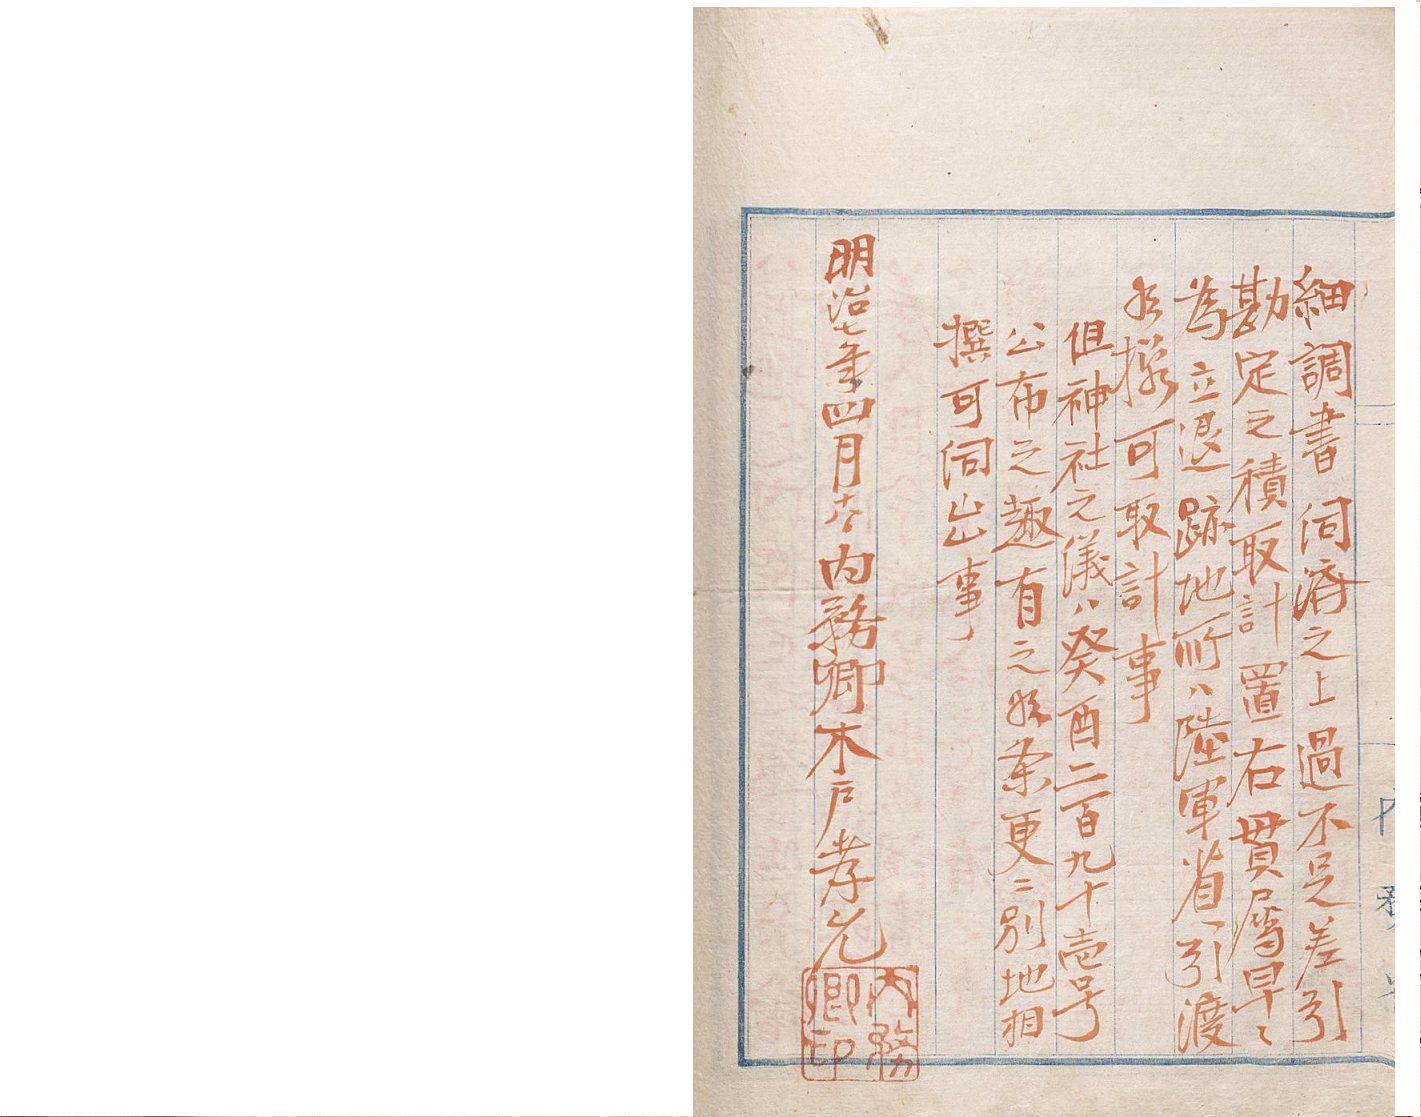 細調書伺済之上過不足差引
勘定之積取計置右貫属早々
為立退跡地所ハ陸軍省ヘ引渡
候様可取計事
但神社之儀ハ癸酉二百九十壱号
公布之趣有之候条更ニ別地相
撰可伺出事
明治七年四月 内務卿木戸孝允
内務
卿印
内務